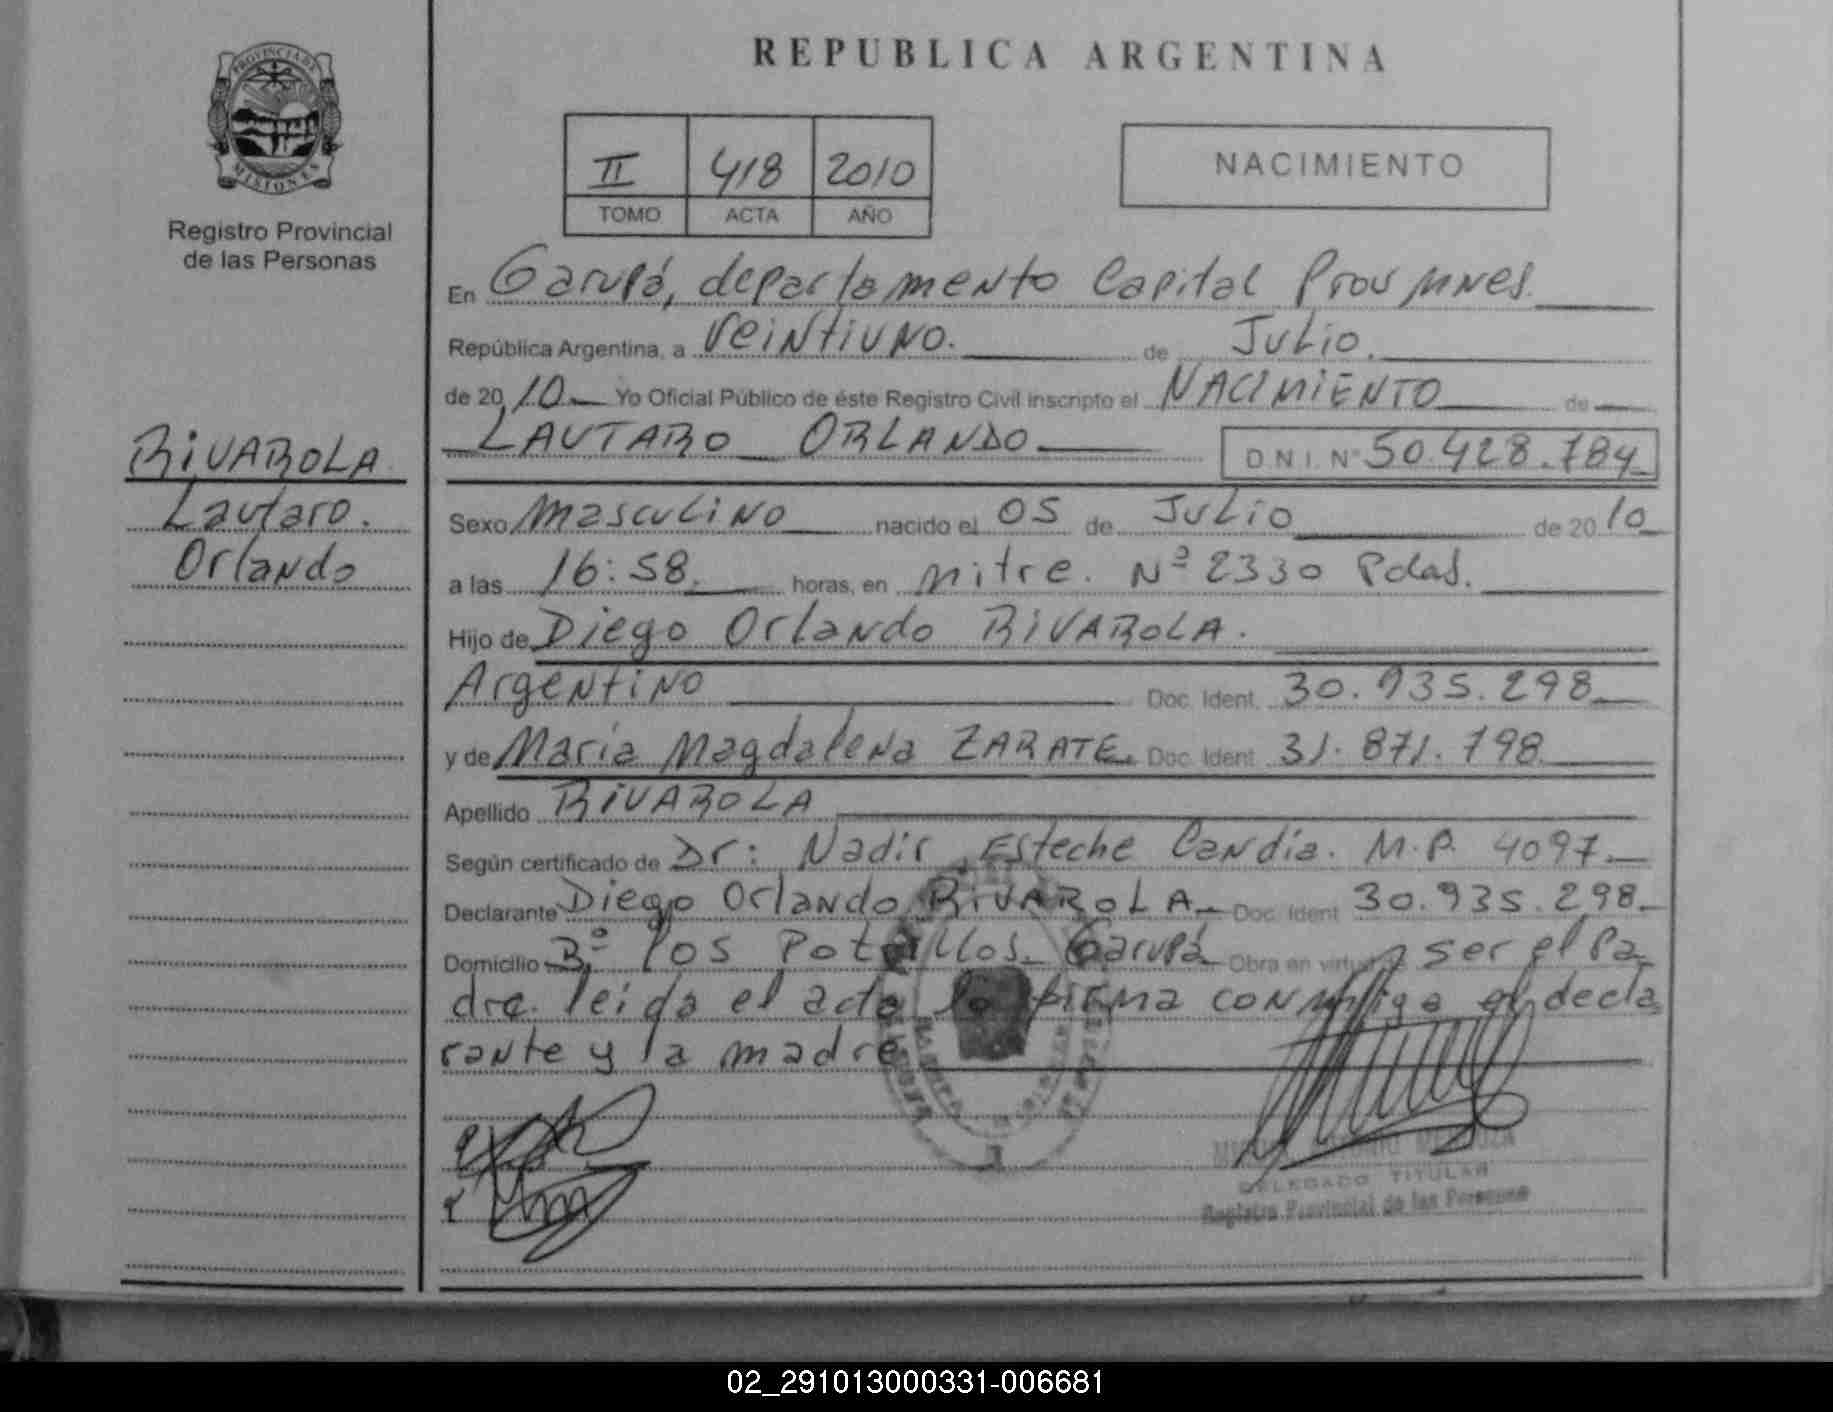 PROVINCIA DE
MISIONES
Registro Provincial
de las Personas
RIVAROLA
Lautaro.
Orlando
REPUBLICA ARGENTINA
II 418 2010
TOMO ACTA AÑO
NACIMIENTO
En Garupá, departamento Capital Prov Mnes.
República Argentina, a veintiuno. de Julio.
de 2010 Yo Oficial Público de éste Registro Civil inscripto el NACIMIENTO de
LAUTARO ORLANDO D.N.I. Nº 50.428.784
Sexo masculino nacido el 05 de Julio de 2010
a las 16:58. horas, en mitre. Nº 2330 Pdas.
Hijo de Diego Orlando RIVAROLA.
Argentino Doc. Ident. 30.935.298
y de María Magdalena ZARATE. Doc. Ident. 31.871.798
Apellido RIVAROLA
Según certificado de Dr: Nadir Esteche Candia. M.P. 4097.
Declarante Diego Orlando RIVAROLA Doc. Ident. 30.935.298
Domicilio Bº los Potrillos. Garupá Obra en virtud ser el Pa
dre. leida el acta la firma conmigo el decla
rante y la madre
DELEGADO TITULAR
Registro Provincial de las Personas
02_291013000331-006681